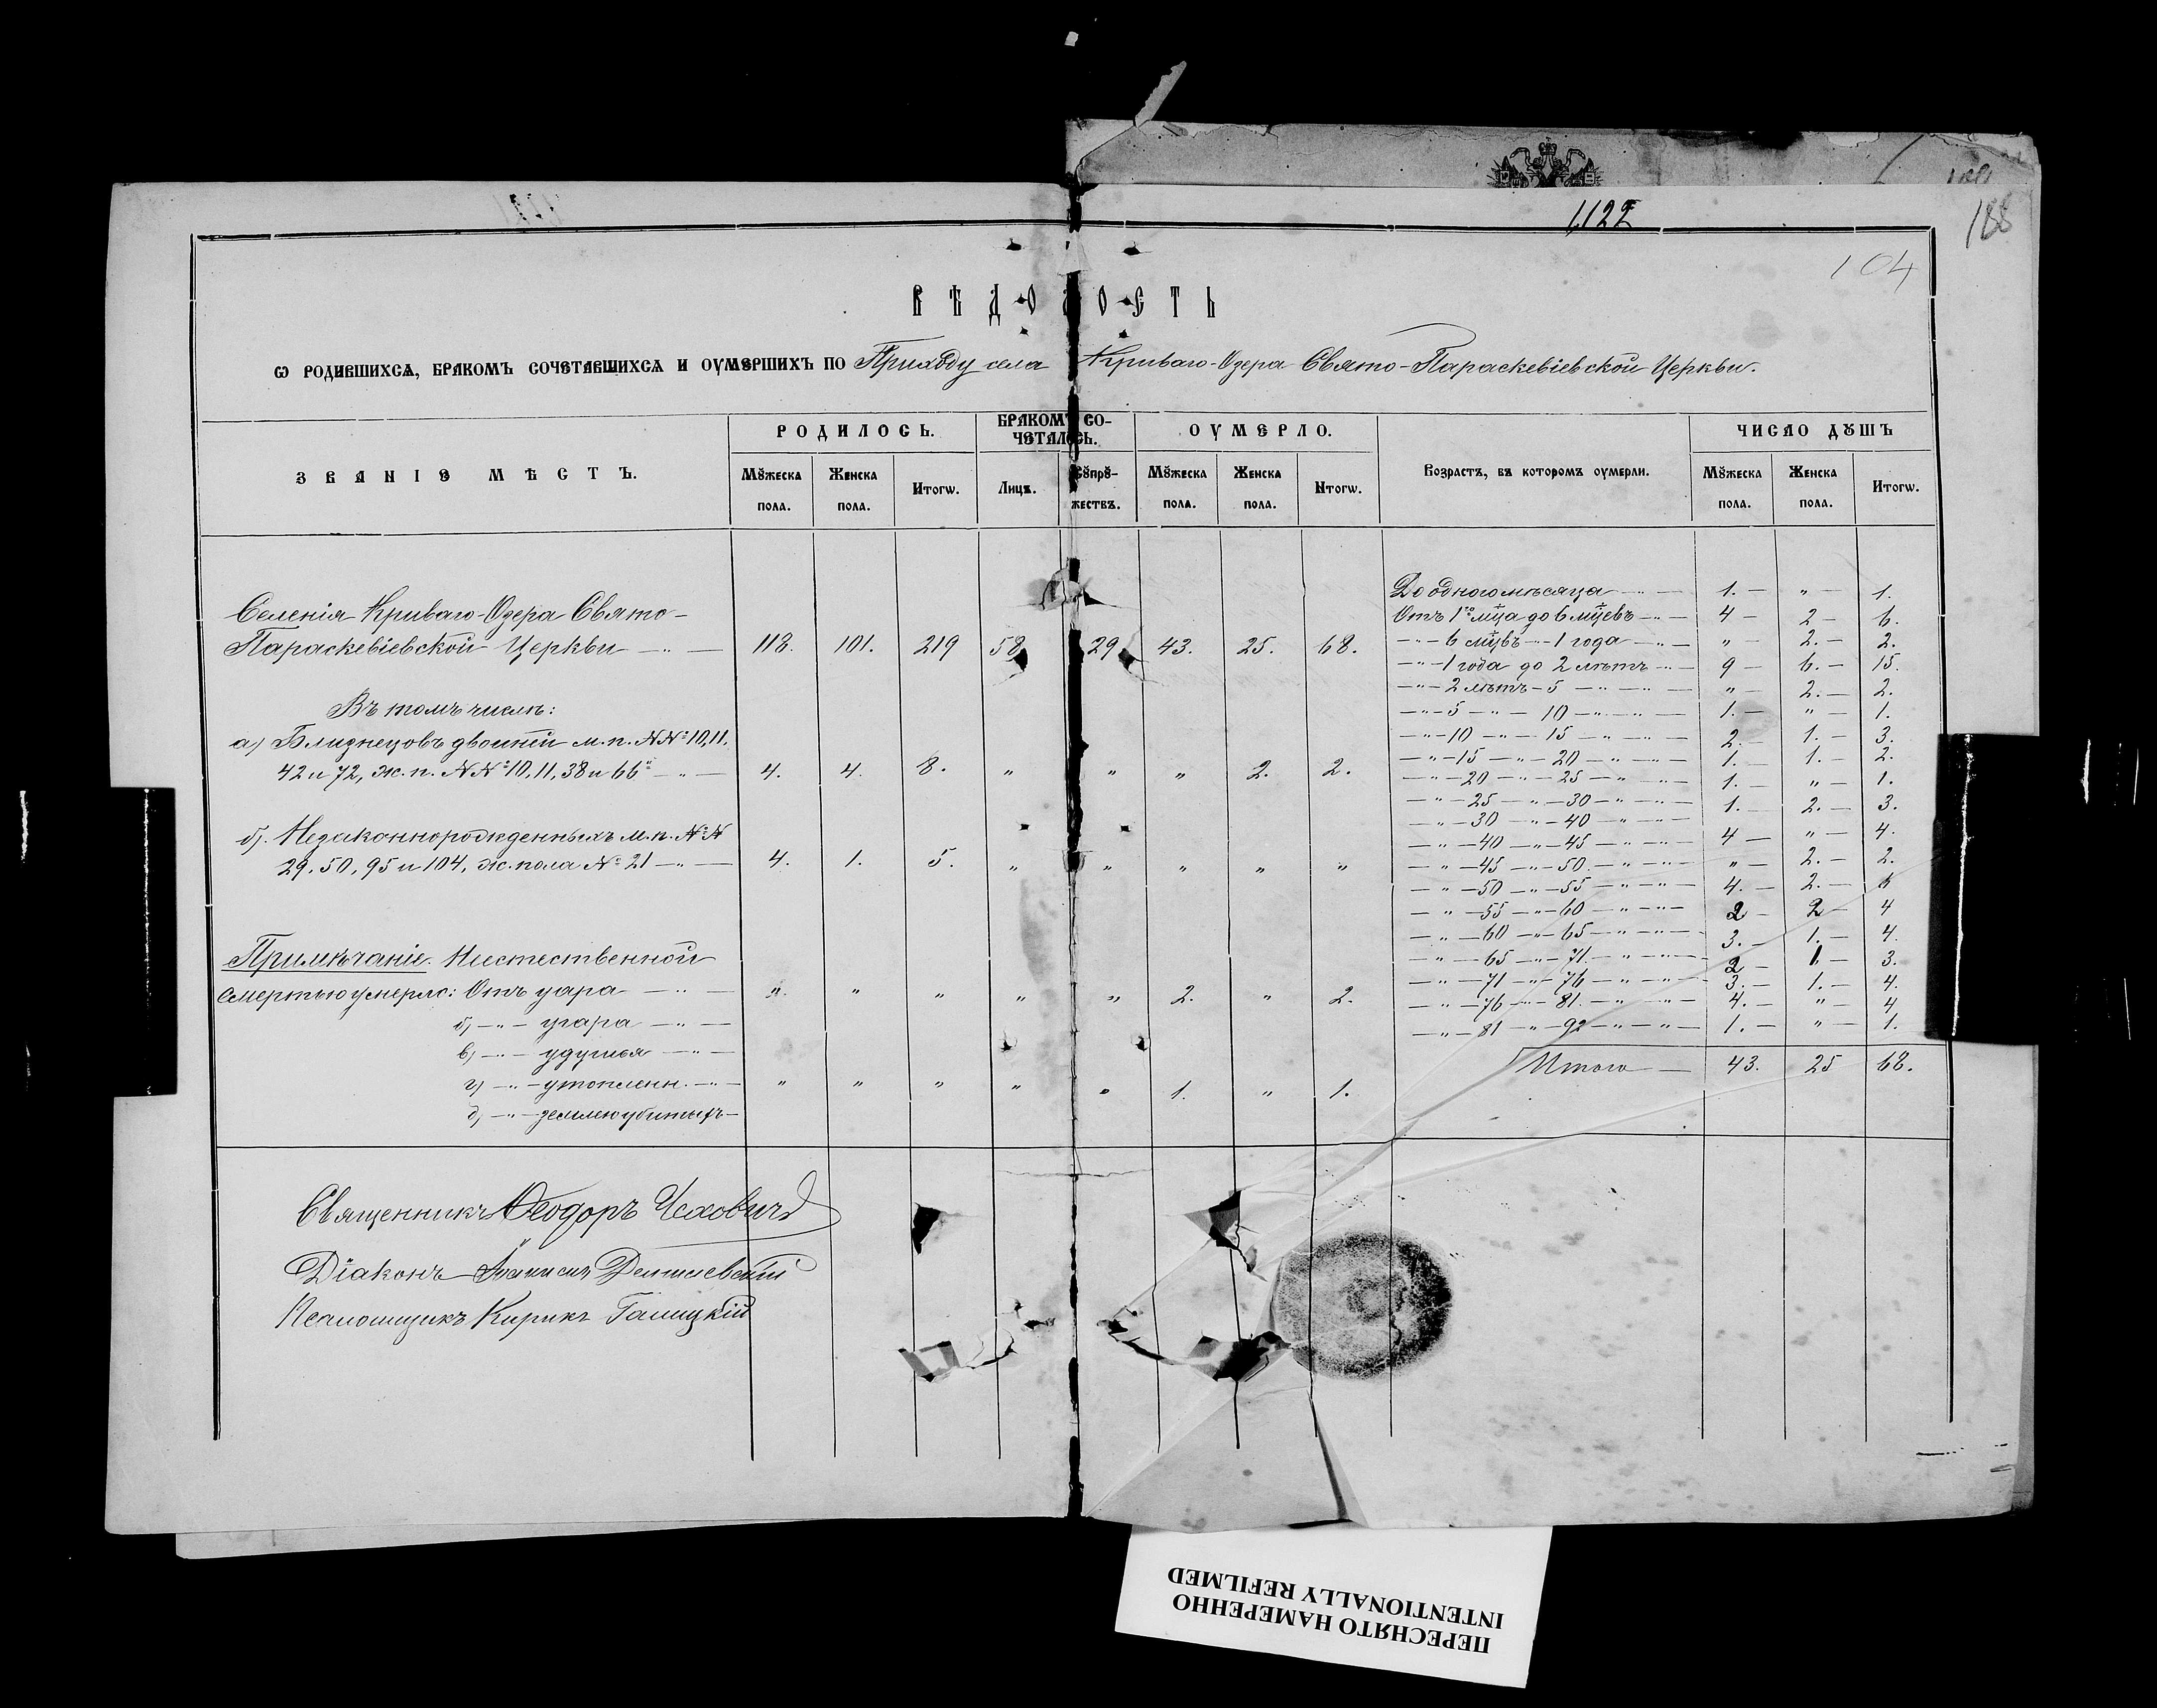 1122
188
104
ВѢДОМОСТЬ
Ѡ РОДИВШИХСѦ, БРАКОМЪ СОЧЕТАВШИХСѦ И ОУМЕРШИХЪ ПО Приходу села Криваго-Озера Свято-Параскевіевской Церкви.
ЗВАНІЕ МѢСТЪ.
РОДИЛОСЬ.
БРАКОМЪ СО-
ЧЕТАЛОСЬ.
ОУМЕРЛО.
Возрастъ, въ которомъ оумерли.
ЧИСЛО ДꙊШЪ
Мꙋжеска пола.
Женска пола.
Итогѡ.
Лицъ.
Сꙋпрꙋ-
жествъ.
Мꙋжеска пола.
Женска пола.
Итогѡ.
Мꙋжеска пола.
Женска пола.
Итогѡ.
Селенія Криваго-Озера Свято-
Параскевіевской Церкви —"— 118. 101. 219 58 29 43. 25. 68.
Въ томъ числѣ:
а) Близнецовъ двойней м. п. №№ 10, 11.
42 и 72, ж. п. №№ 10, 11, 38 и 66 —"— 4. 4. 8. " " " 2. 2.
б). Незаконнорожденныхъ м. п. №№
29. 50, 95 и 104, ж. пола № 21 —"— 4. 1. 5. " " " " "
Примѣчаніе. Неестественной
смертью умерло: Отъ удара —"— " " " " " 2. " 2.
б) —"— угара —"—
в) —"— удушья —"—
г) —"— утопленн. —"— " " " " " 1. " 1.
д) —"— землею убитыхъ —
До одного мѣсяца —"— 1. — " — 1.
Отъ 1го мѣца до 6 мѣцевъ —"— 4 — 2 — 6.
—"— 6 мѣцвъ —"— 1 года —"— " — 2. — 2.
—"— 1 года до 2 лѣтъ —"— 9 — 6. — 15.
—"— 2 лѣтъ — 5 —"—"— " — 2. — 2.
—"— 5 —"— 10 —"—"— 1. — " — 1.
—"— 10 —"— 15 —"—"— 2. — 1. — 3.
—"— 15 —"— 20 —"—"— 1. — 1. — 2.
—"— 20 —"— 25 —"—"— 1. — " — 1.
—"— 25 —"— 30 —"—"— 1. — 2. — 3.
—"— 30 —"— 40 —"—"—
—"— 40 —"— 45 —"—"— 4 — " — 4.
—"— 45 —"— 50. —"—"— " — 2. — 2.
—"— 50 —"— 55 —"—"— 4. — 2. — 6
—"— 55 —"— 60 —"—"— 2 — 2 — 4
—"— 60 —"— 65 —"—"— 3. — 1. — 4.
—"— 65 —"— 71. —"—"— 2 — 1 — 3.
—"— 71 —"— 76 —"—"— 3. — 1. — 4.
—"— 76 —"— 81. —"—"— 4. — " — 4
—"— 81 —"— 92 —"—"— 1. — " — 1.
Итого — 43. 25 68.
Священникъ Ѳеодоръ Чеховичъ
Діаконъ
Псаломщикъ Кирикъ Галицкій
ПЕРЕСНЯТО НАМЕРЕННО
INTENTIONALLY REFILMED